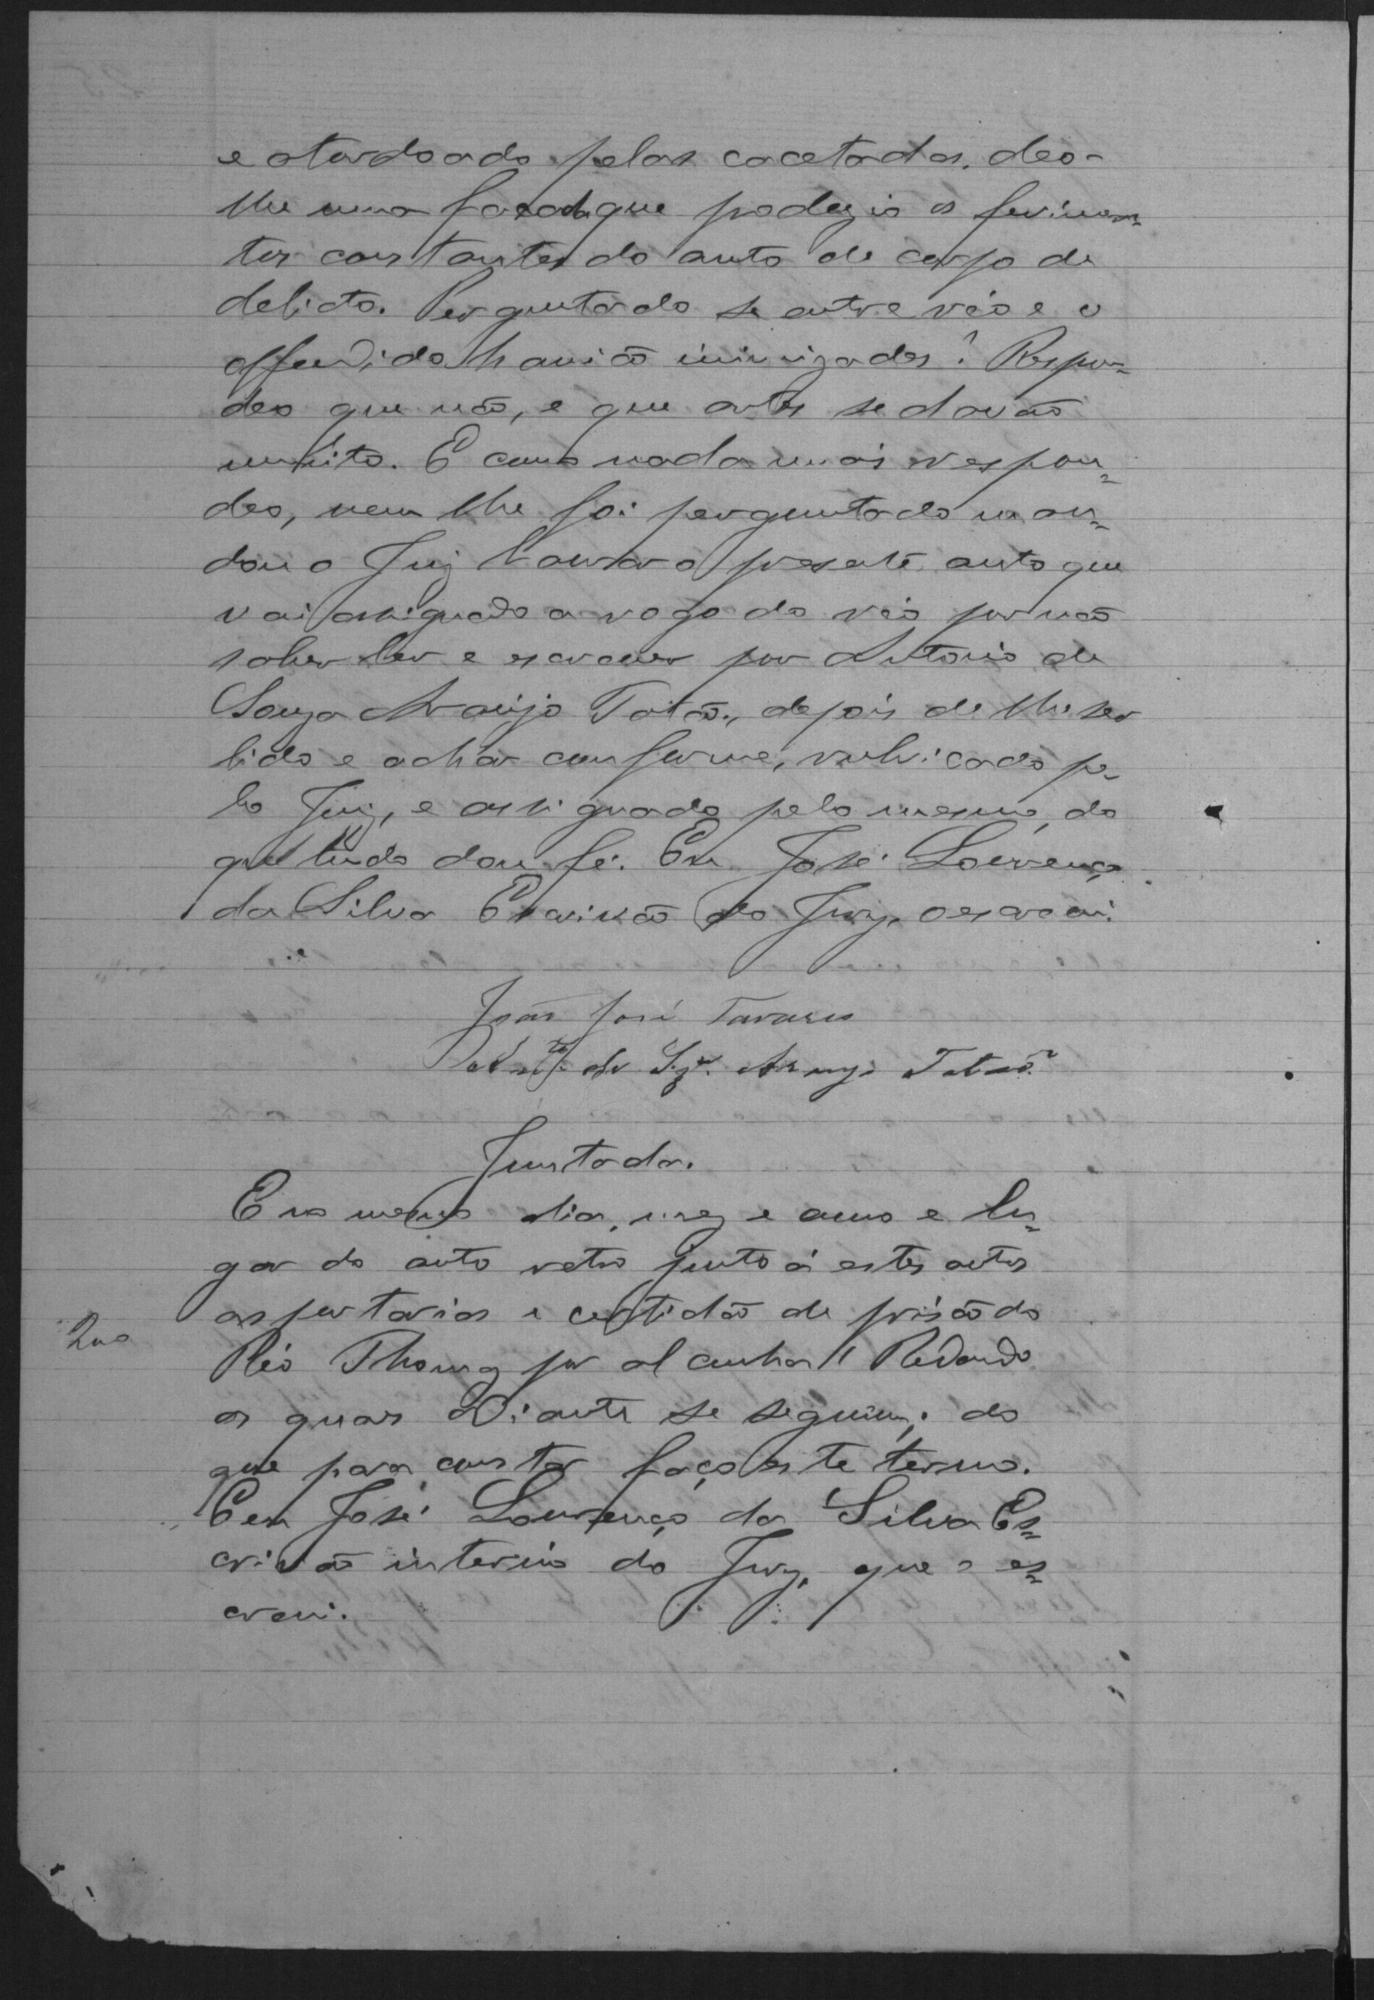 e atordoado pelas cacetadas, deo-
lhe uma facada que produzio os ferimen=
tos constantes do auto de corpo de
delicto. Perguntado se entre réo e o
offendido havião inimizades? Respon=
deo que não, e que antes se davão
muito. E como nada mais respon=
deo, nem lhe foi perguntado man=
dou o Juiz lavrar o presente auto que
vai assignado a rogo do réo por não
saber ler e escrever por Antonio de
Souza Araujo Tatão, depois de lhe ser
lido e achar conforme, rubricado pe-
lo Juiz, e assignado pelo mesmo, do
que tudo dou fé. Eu José Lourenço
da Silva Escrivão do Jury, o escrevi.
João José Tavares
de Sz.ª Araujo Tatão
Juntada.
E no mesmo dia, mez e anno e lu=
gar do auto retro junto á estes autos
as portarias e certidão de prisão do
Réo Thomaz por alcunha Redondo
as quaes Diante se seguem; do
que para constar faço este termo.
Eeu José Lourenço da Silva Es=
crivão interino do Jury, que o es=
crevi.